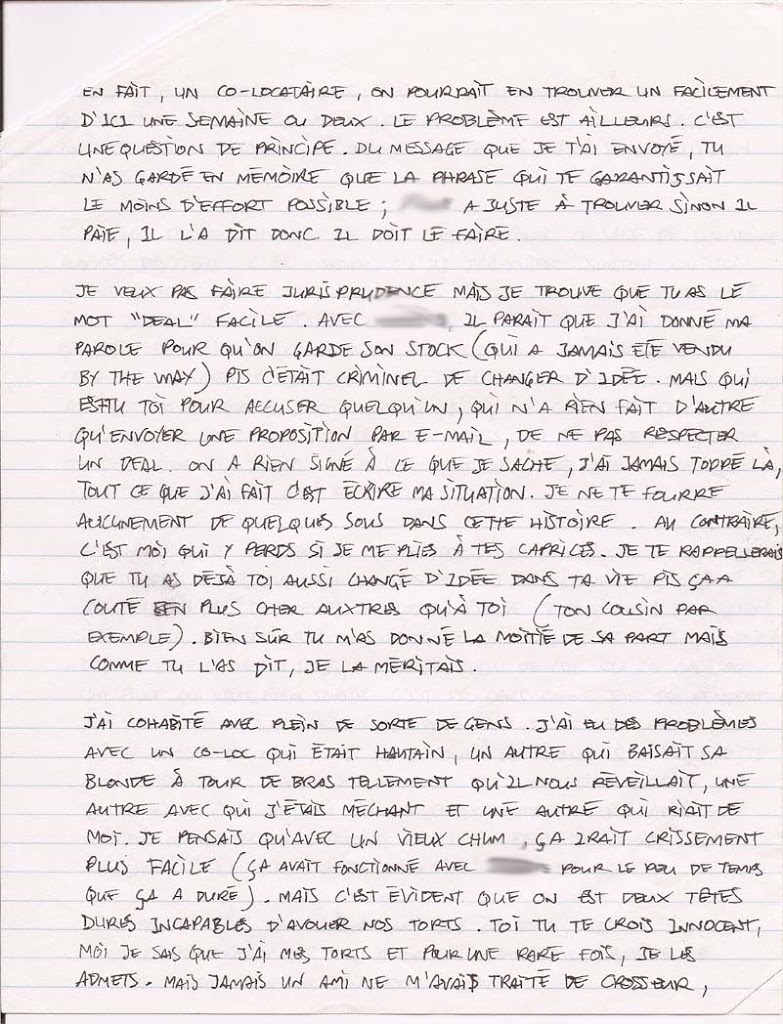 EN FAIT, UN CO-LOCATAIRE, ON POURRAIT EN TROUVER UN FACILEMENT
D'ICI UNE SEMAINE OU DEUX. LE PROBLÈME EST AILLEURS. C'EST
UNE QUESTION DE PRINCIPE. DU MESSAGE QUE JE T'AI ENVOYÉ, TU
N'AS GARDÉ EN MÉMOIRE QUE LA PHRASE QUI TE GARANTISSAIT
LE MOINS D'EFFORT POSSIBLE ; A JUSTE À TROUVER SINON IL
PAIE, IL L'A DIT DONC IL DOIT LE FAIRE.
JE VEUX PAS FAIRE JURISPRUDENCE MAIS JE TROUVE QUE TU AS LE
MOT "DEAL" FACILE. AVEC IL PARAIT QUE J'AI DONNÉ MA
PAROLE POUR QU'ON GARDE SON STOCK (QUI A JAMAIS ÉTÉ VENDU
BY THE WAY) PIS C'ÉTAIT CRIMINEL DE CHANGER D'IDÉE. MAIS QUI
ESTU TOI POUR ACCUSER QUELQU'UN, QUI N'A RIEN FAIT D'AUTRE
QU'ENVOYER UNE PROPOSITION PAR E-MAIL, DE NE PAS RESPECTER
UN DEAL. ON A RIEN SIGNÉ À CE QUE JE SACHE, J'AI JAMAIS TOPPÉ LÀ,
TOUT CE QUE J'AI FAIT C'EST ÉCRIRE MA SITUATION. JE NE TE FOURRE
AUCUNEMENT DE QUELQUES SOUS DANS CETTE HISTOIRE. AU CONTRAIRE,
C'EST MOI QUI Y PERDS SI JE ME PLIES À TES CAPRICES. JE TE RAPPELLERAIS
QUE TU AS DÉJÀ TOI AUSSI CHANGÉ D'IDÉE DANS TA VIE PIS ÇA A
COUTÉ BEN PLUS CHER AUXTRES QU'À TOI (TON COUSIN PAR
EXEMPLE). BIEN SÛR TU M'AS DONNÉ LA MOITIÉ DE SA PART MAIS
COMME TU L'AS DIT, JE LA MÉRITAIS.
J'AI COHABITÉ AVEC PLEIN DE SORTE DE GENS. J'AI EU DES PROBLÈMES
AVEC UN CO-LOC QUI ÉTAIT HAUTAIN, UN AUTRE QUI BAISAIT SA
BLONDE À TOUR DE BRAS TELLEMENT QU'IL NOUS RÉVEILLAIT, UNE
AUTRE AVEC QUI J'ÉTAIS MÉCHANT ET UNE AUTRE QUI RIAIT DE
MOI. JE PENSAIS QU'AVEC UN VIEUX CHUM, ÇA IRAIT CRISSEMENT
PLUS FACILE (ÇA AVAIT FONCTIONNÉ AVEC POUR LE PEU DE TEMPS
QUE ÇA A DURÉ). MAIS C'EST ÉVIDENT QUE ON EST DEUX TÊTES
DURES INCAPABLES D'AVOUER NOS TORTS. TOI TU TE CROIS INNOCENT,
MOI JE SAIS QUE J'AI MES TORTS ET POUR UNE RARE FOIS, JE LES
ADMETS. MAIS JAMAIS UN AMI NE M'AVAIS TRAITÉ DE CROSSEUR,